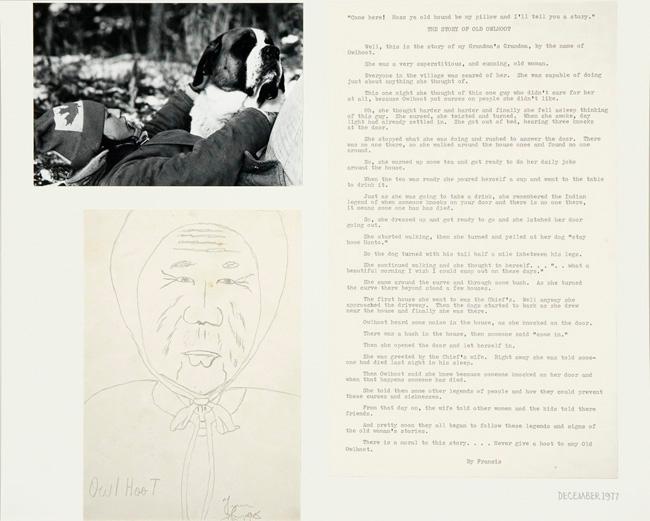 "Come here! Hass ye old hound be my pillow and I'll tell you a story."
THE STORY OF OLD OWLHOOT
Well, this is the story of my Grandma's Grandma, by the name of
Owlhoot.
She was a very superstitious, and cunning, old woman.
Everyone in the village was scared of her. She was capable of doing
just about anything she thought of.
This one night she thought of this one guy who didn't care for her
at all, because Owlhoot put curses on people she didn't like.
Oh, she thought harder and harder and finally she fell asleep thinking
of this guy. She cursed, she twisted and turned. When she awoke, day
light had already settled in. She got out of bed, hearing three knocks
at the door.
She stopped what she was doing and rushed to answer the door. There
was no one there, so she walked around the house once and found no one
around.
So, she warmed up some tea and got ready to do her daily jobs
around the house.
When the tea was ready she poured herself a cup and went to the table
to drink it.
Just as she was going to take a drink, she remembered the Indian
legend of when someone knocks on your door and there is no one there,
it means some one has has died.
So, she dressed up and got ready to go and she latched her door
going out.
She started walking, then she turned and yelled at her dog "stay
home Honto."
So the dog turned with his tail half a mile inbetween his legs.
She continued walking and she thought to herself. . . ". . what a
beautiful morning I wish I could camp out on these days."
She came around the curve and through some bush. As she turned
the curve there beyond stood a few houses.
The first house she went to was the Chief's. Well anyway she
approached the driveway. Then the dogs started to bark as she drew
near the house and finally she was there.
Owlhoot heard some noise in the house, as she knocked on the door.
There was a hush in the house, then someone said "come in."
Then she opened the door and let herself in.
She was greeted by the Chief's wife. Right away she was told some-
one had died last night in his sleep.
Then Owlhoot said she knew because someone knocked on her door and
when that happens someone has died.
She told them some other legends of people and how they could prevent
these curses and sicknesses.
From that day on, the wife told other women and the kids told there
friends.
And pretty soon they all began to follow these legends and signs of
the old woman's stories.
There is a moral to this story. . . . Never give a hoot to any Old
Owlhoot.
By Francis
Owl HooT
DECEMBER 1977